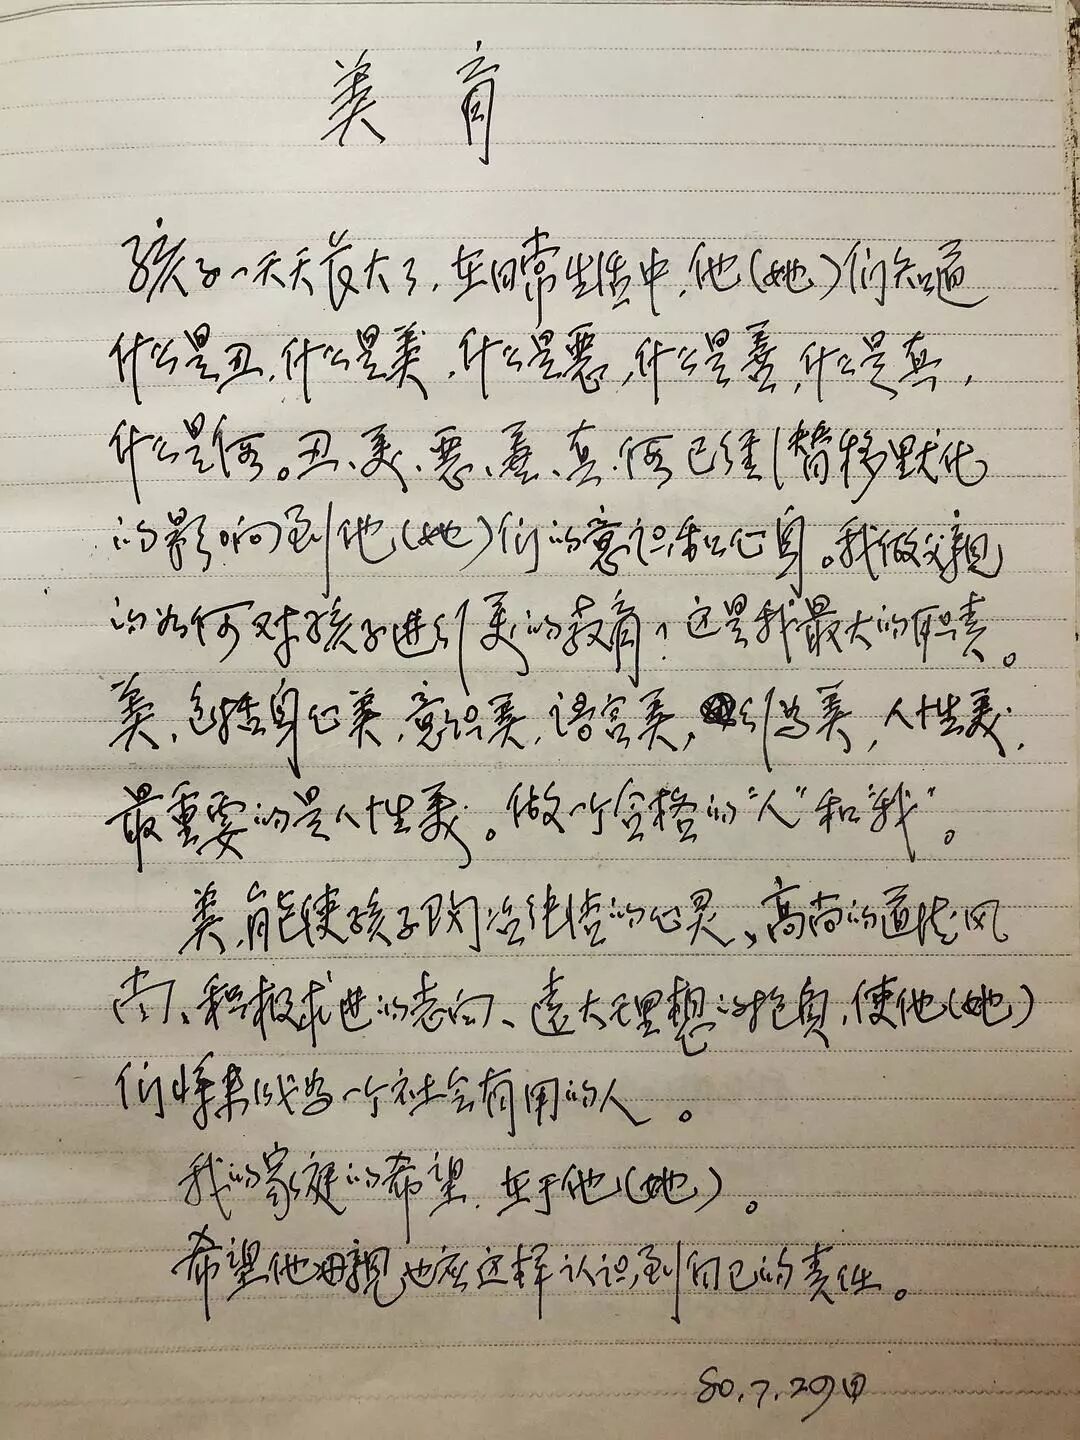 美育
孩子一天天长大了，在日常生活中，他（她）们知道
什么是丑，什么是美，什么是恶，什么是善，什么是真，
什么是假。丑、美、恶、善、真、假已经潜移默化
的影响到他（她）们的意识和心身。我做父親
的如何对孩子进行美的教育，这是我最大的职责。
美，包括身心美，意识美，语言美，行为美，人性美，
最重要的是人性美。做一个合格的“人”和“我”。
美，能使孩子陶冶纯洁的心灵、高尚的道德风
尚、积极求进的志向、遠大理想的抱負，使他（她）
们将来成为一个社会有用的人。
我的家庭的希望，在于他（她）。
希望他母親也应这样认识到自己的责任。
80.7.29日